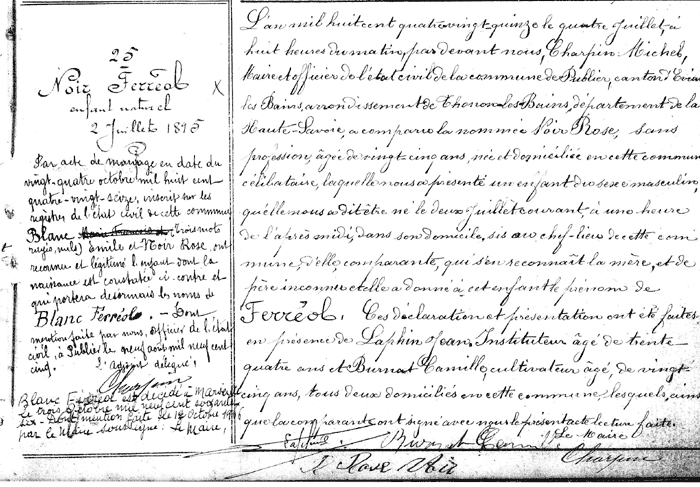 25
Noir Ferréol
enfant naturel
2 Juillet 1895
Par acte de mariage en date du
vingt-quatre octobre mil huit cent
quatre-vingt-seize, inscrit sur les
registres de l'état civil de cette commune
Blanc (trois mots
rayés, nuls) Emile et Noir Rose, ont
reconnu et légitimé l'enfant dont la
naissance est constatée ci-contre et
qui portera désormais les noms de
Blanc Ferréol. - Dont
mention faite par nous, officier de l'état
civil, à Publier le neuf août mil neuf cent
cinq.
L'agent délégué,
Charpin
Blanc Ferréol est décédé à
le trois octobre mil neuf cent soixante
six - Dont mention faite le 12 octobre 1966
par le Maire soussigné : Le Maire,
X
L'an mil huit cent quatre-vingt-quinze le quatre Juillet, à
huit heures du matin, par devant nous, Charpin Michel,
Maire et officier de l'état civil de la commune de Publier, canton d'Evian
les Bains, arrondissement de Thonon-les-Bains, département de la
Haute-Savoie, a comparu la nommée Noir Rose, sans
profession, âgée de vingt-cinq ans, née et domiciliée en cette commune
célibataire, laquelle nous a présenté un enfant du sexe masculin,
qu'elle nous a dit être né le deux Juillet courant, à une heure
de l'après midi, dans son domicile, sis au chef-lieu de cette com
mune, d'elle comparante, qui s'en reconnaît la mère, et de
père inconnu et elle a donné à cet enfant le prénom de
Ferréol. Ces déclaration et présentation ont été faites
en présence de Laphin Jean, Instituteur âgé de trente
quatre ans et Burnat Camille, cultivateur âgé, de vingt
cinq ans, tous deux domiciliés en cette commune, lesquels, ainsi
que la comparante ont signé avec nous le présent acte lecture faite.
Laphin Burnat Le Maire
Rose Noir Charpin